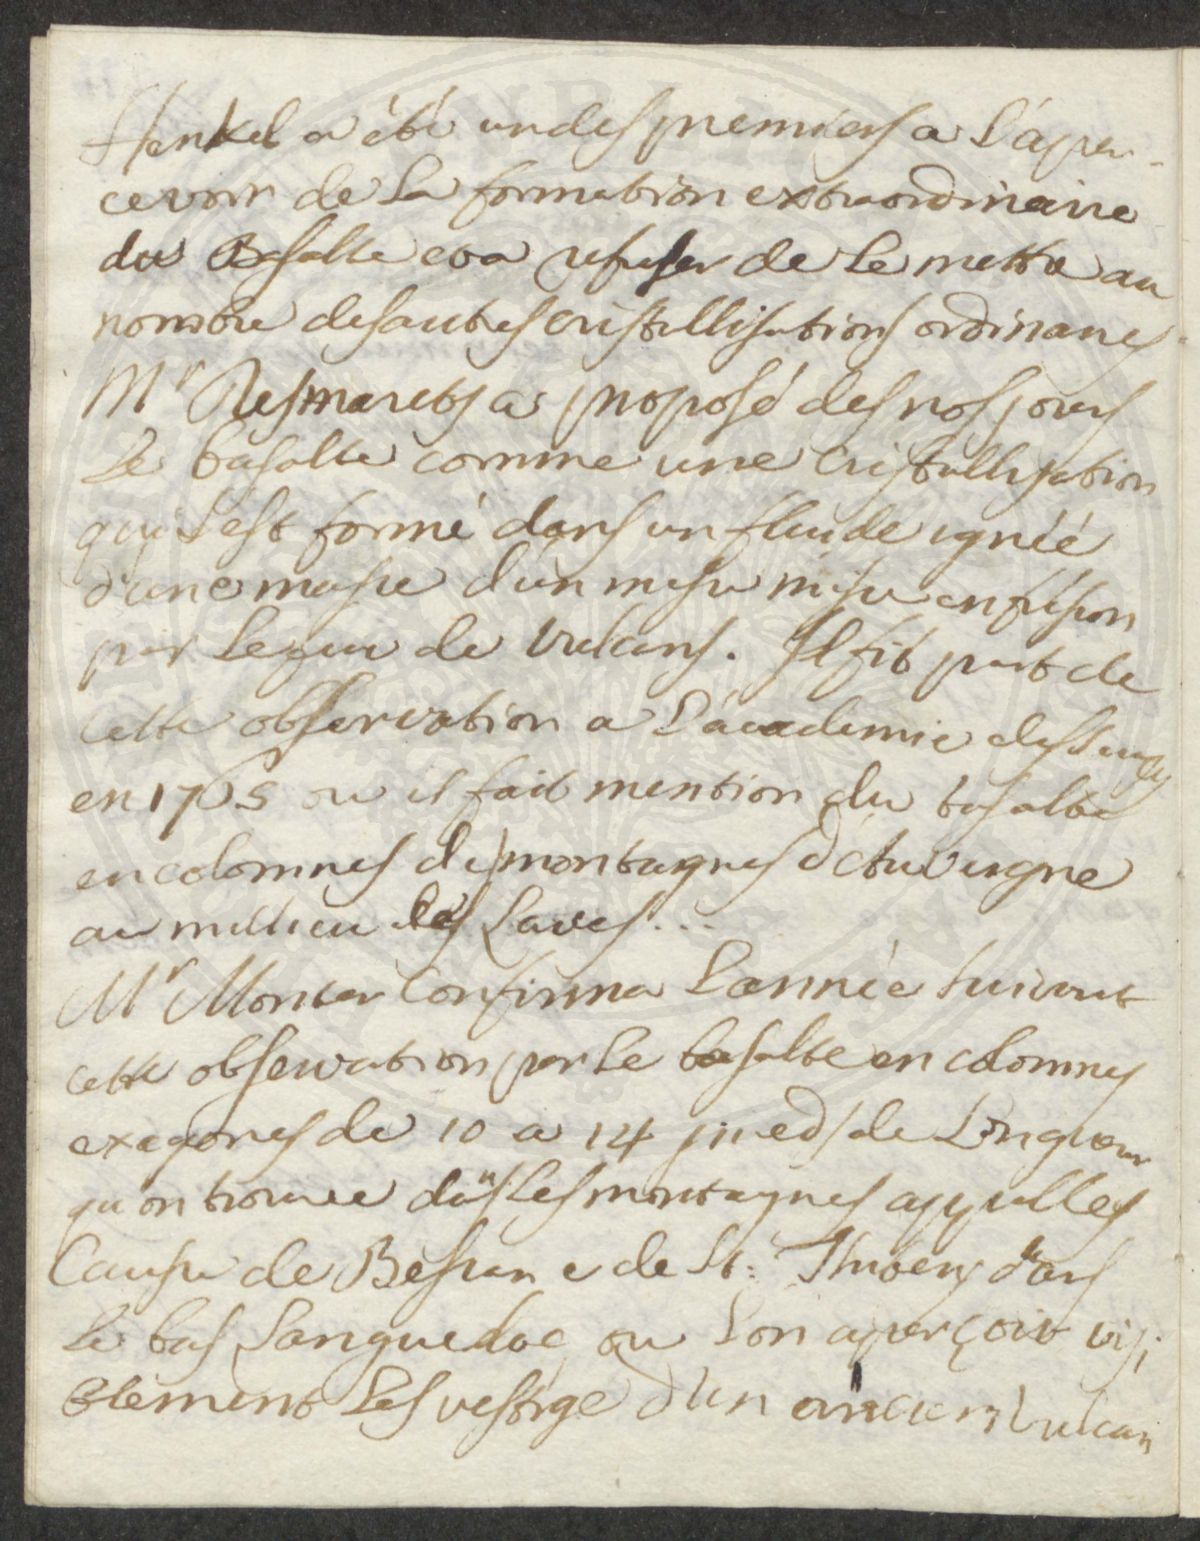 Henkel a été un des premiers a s'aper-
cevoir de la formation extraordinaire
du Basalte et a refuser de le mettre au
nombre des autres cristallisations ordinaires
Mr Desmarets a proposé des nos jours
le basalte comme une cristallisation
qui s'est formé dans un fluide ignéé
d'une masse d'un mise en fusion
par le feu de vulcans. Il fit part de
cette observation a l'academie
en 17 5 ou il fait mention du basalte
en colomnes des montagnes d'Auvergne
au millieu des Laves...
Mr confirma l'année suivant
cette observation par le basalte en colomnes
exagones de 10 a 14 pieds de Longueur
qu on trouve dans les montagnes appelles
Causse de e de St: dans
le bas Languedoc, ou l'on aperçoit visi
blement les vestige d'un ancien vulcan